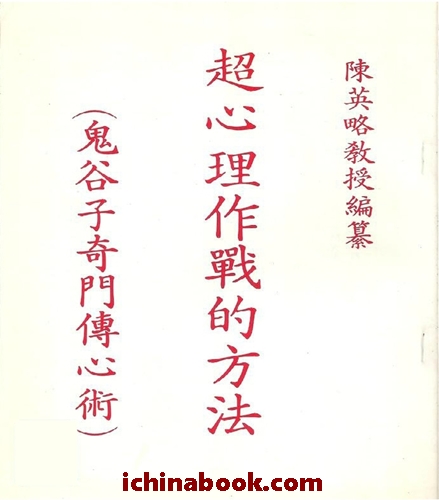 陳英略教授編纂
超心理作戰的方法
（鬼谷子奇門傳心術）
ichinabook.com